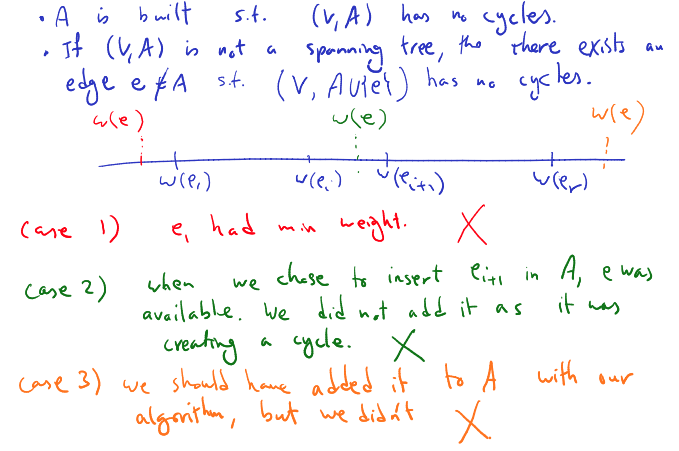 • A is built s.t. (V, A) has no cycles.
• If (V, A) is not a spanning tree, the there exists an
edge e ∉ A s.t. (V, A∪{e}) has no cycles.
w(e) w(e) w(e)
w(e₁) w(eᵢ) w(eᵢ₊₁) w(eᵣ)
case 1) e₁ had min weight. X
case 2) when we chose to insert eᵢ₊₁ in A, e was
available. We did not add it as it was
creating a cycle. X
case 3) we should have added it to A with our
algorithm, but we didn't X